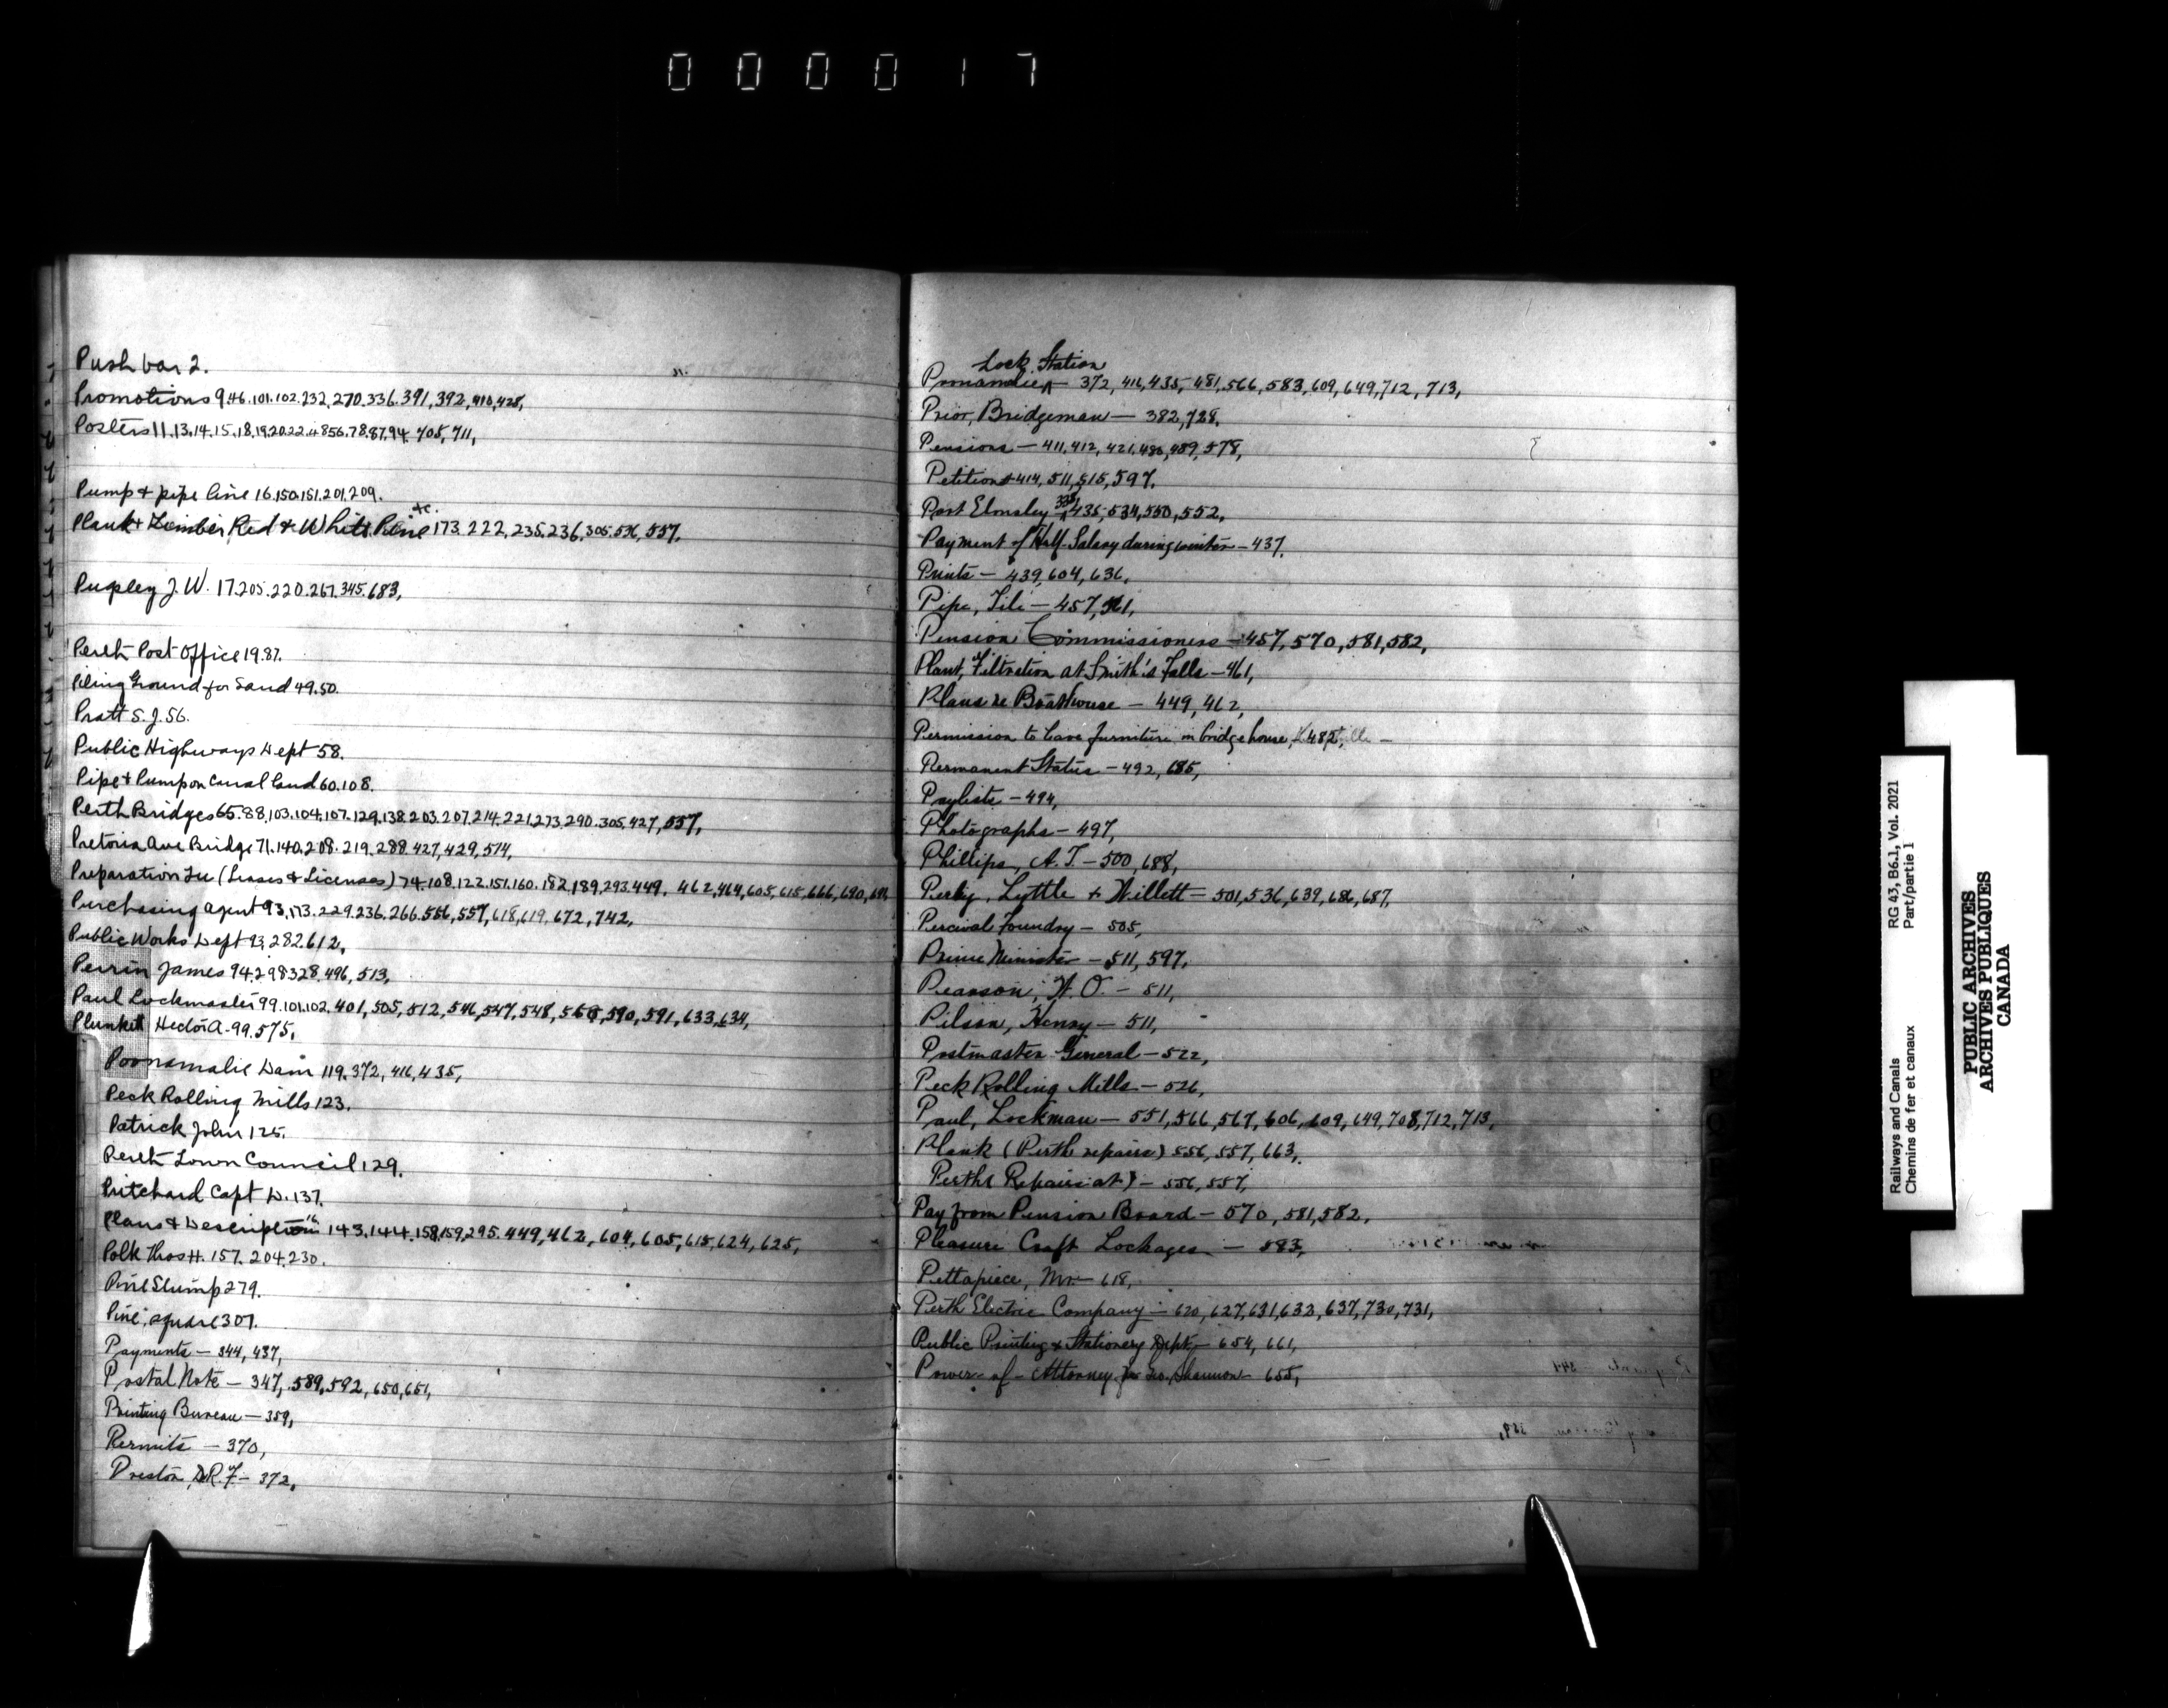 000017
Push bar 2.
Promotions 9.46.101.102.232.270.336.391,392,410,428,
Posters 11.13.14.15.18.19.20.22.48.56.78.87.94. 705,711,
Pump & pipe line 16.150.151.201.209.
Plank & Timber Red & White Pine etc. 173.222.235.236.305.536,557.
Pugsley J. W. 17.205.220.267.345.683,
Perth Post Office 19.87.
Piling Ground for Sand 49.50.
Pratt S. J. 56.
Public Highways Dept 58.
Pipe & Pump on Canal Land 60.108.
Perth Bridges 65.88.103.104.107.129.138.203.207.214.221.273.290.305.427,557,
Pretoria Ave Bridge 71.140.208.219.288.427,429,574,
Preparation Fee (Leases & Licenses) 74.108.122.151.160.182.189.293.449. 462,464,605,615,666,690,
Purchasing agent 93.173.229.236.266.556,557,618,619,672,742,
Public Works Dept 93.282.612,
Perrin James 94.298.328.496,513,
Paul Lockmaster 99.101.102.401,505,512,546,547,548,590,591,633,634,
Plunkett Hector A. 99.575,
Poonamalie Dam 119.372,416,435,
Peck Rolling Mills 123.
Patrick John 125.
Perth Town Council 129.
Pritchard Capt D. 137.
Plans & Description 143.144.158.159.295.449,462,604,605,615,624,625,
Polk Thos H. 157.204.230.
Pine Stump 279.
Pine, square 307.
Payments — 344, 437,
Postal Note — 347, 589, 592, 650, 651,
Printing Bureau — 359,
Permits — 370,
Preston, R. F. — 372,
Lock Station
Poonamalie — 372, 416, 435, 481, 566, 583, 609, 649, 712, 713,
Prior, Bridgeman — 382, 728,
Pensions — 411, 412, 421, 486, 489, 578,
Petitions — 414, 511, 515, 597,
Port Elmsley — 335, 435, 534, 550, 552,
Payment of Half-Salary during winter — 437,
Prints — 439, 604, 636,
Pipe, Tile — 457, 561,
Pension Commissioners — 457, 570, 581, 582,
Plant, Filtration at Smith's Falls — 461,
Plans re Boathouse — 449, 462,
Permission to leave furniture in bridge house, 482,
Permanent Status — 492, 685,
Paylists — 494,
Photographs — 497,
Phillips, A. T. — 500, 688,
Perley, Lyttle & Willett — 501, 536, 639, 686, 687,
Percival Foundry — 505,
Prime Minister — 511, 597,
Pearson, W. O. — 511,
Pilson, Henry — 511,
Postmaster General — 522,
Peck Rolling Mills — 526,
Paul, Lockman — 551, 566, 567, 606, 609, 649, 708, 712, 713,
Plank (Perth repairs) 556, 557, 663,
Perth (Repairs at) — 556, 557,
Pay from Pension Board — 570, 581, 582,
Pleasure Craft Lockages — 583,
Pettapiece, Mr. — 618,
Perth Electric Company — 620, 627, 631, 632, 637, 730, 731,
Public Printing & Stationery Dept. — 654, 661,
Power-of-Attorney for Geo. Shannon — 655,
Railways and Canals
Chemins de fer et canaux
RG 43, B6.1, Vol. 2021
Part/partie 1
PUBLIC ARCHIVES
ARCHIVES PUBLIQUES
CANADA